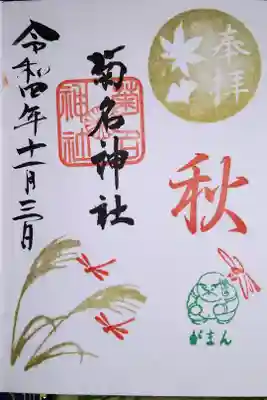 奉拝
秋
菊名神社
菊名神社
令和四年十一月三日
がまん